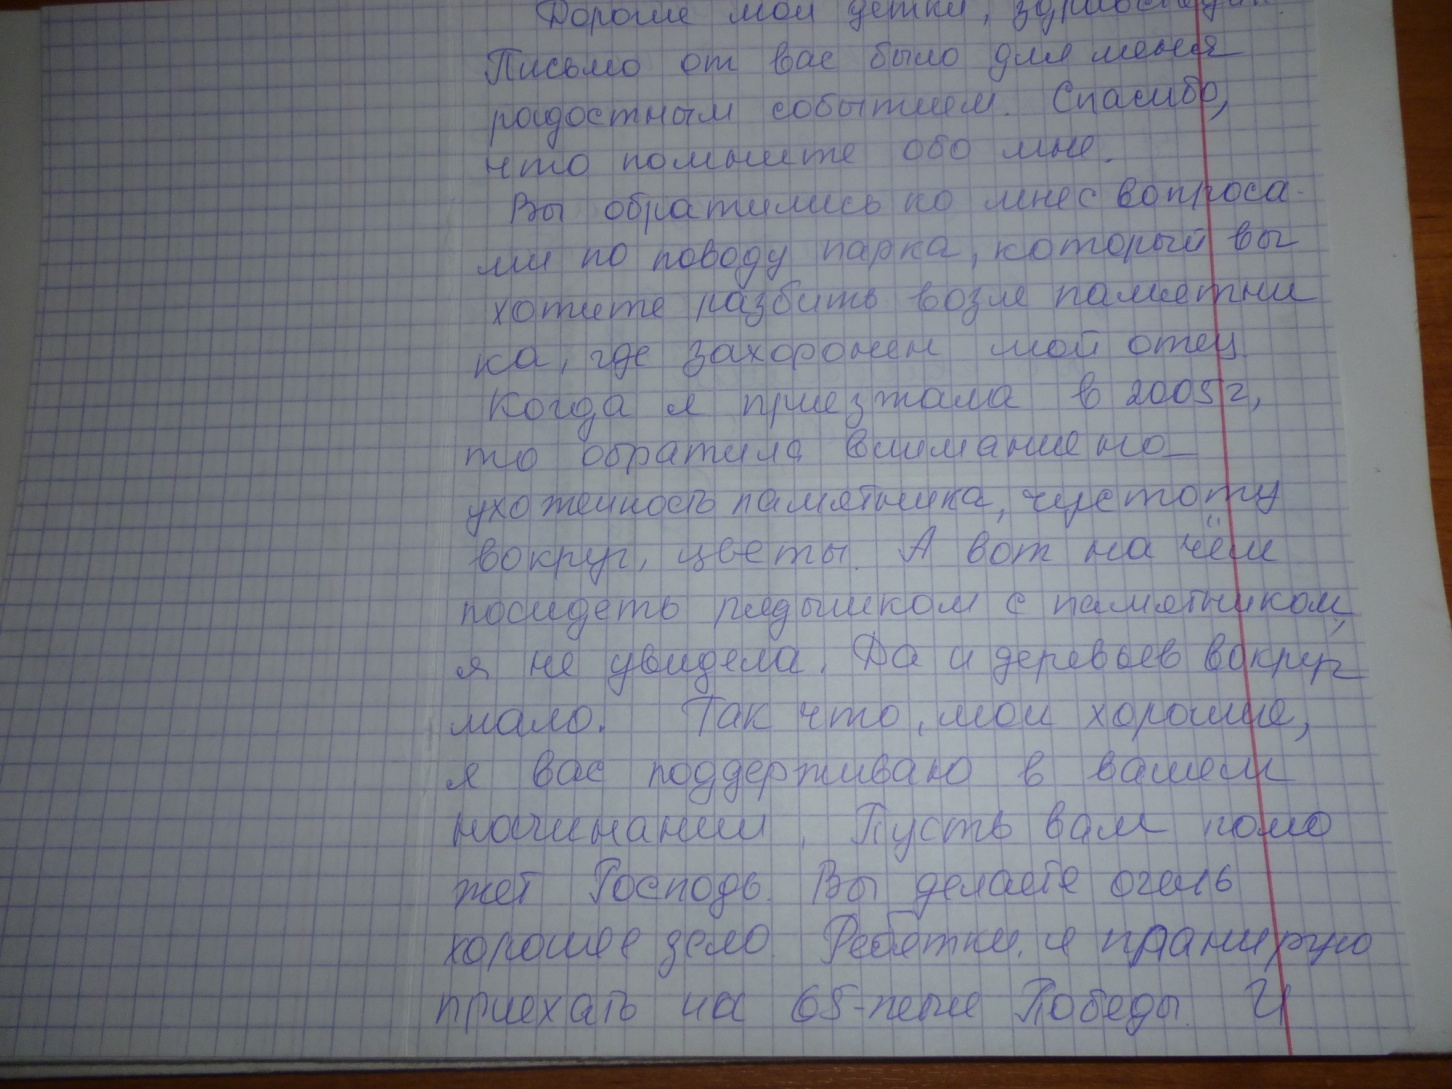 Дорогие мои детки, здравствуйте!
Письмо от вас было для меня
радостным событием. Спасибо,
что помните обо мне.
Вы обратились ко мне с вопроса-
ми по поводу парка, который вы
хотите разбить возле памятни
ка, где захоронен мой отец.
Когда я приезжала в 2005г,
то обратила внимание на
ухоженность памятника, чистоту
вокруг, цветы. А вот на чём
посидеть рядышком с памятником,
я не увидела. Да и деревьев вокруг
мало. Так что, мои хорошие,
я вас поддерживаю в вашем
начинании. Пусть вам помо
жет Господь. Вы делаете очень
хорошее дело. Ребятки, я планирую
приехать на 65-летие Победы. И